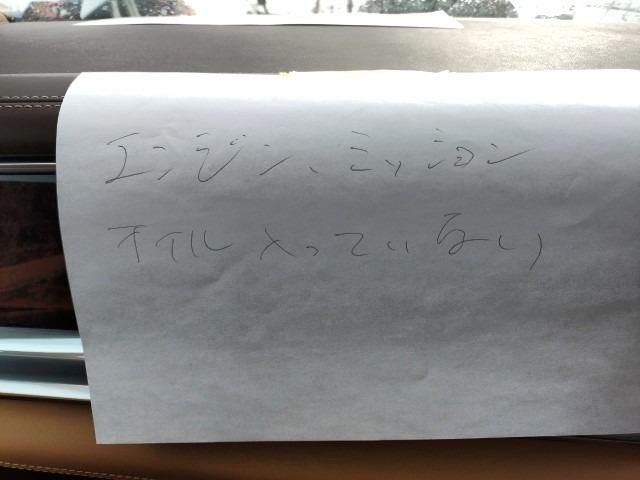 エンジン、ミッション
オイル入っていない